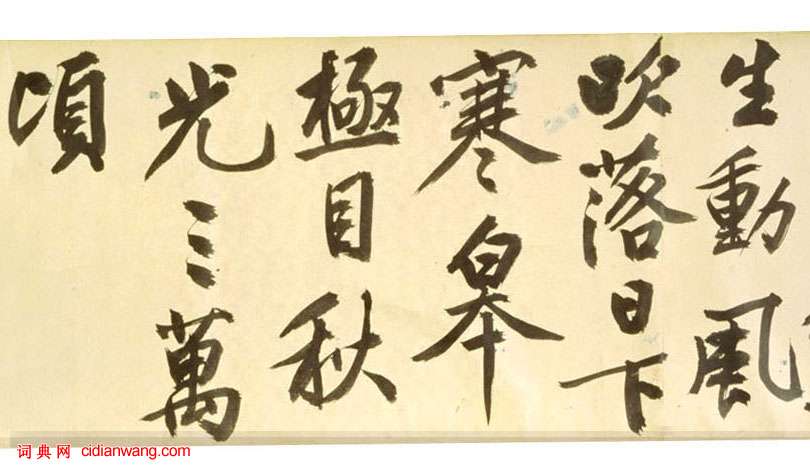 生動風
吹落日下
寒皋
極目秋
光三萬
頃
词典网 cidianwang.com